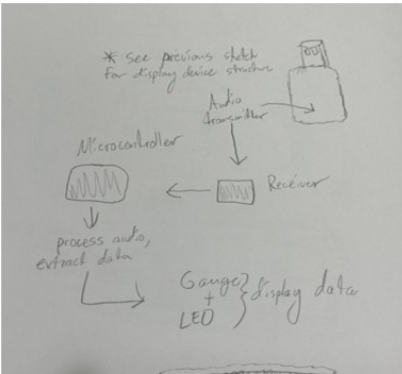 * See previous sketch
for display device structure
Audio
transmitter
Microcontroller
Receiver
process audio,
extract data
Gauge
+
LED
display data